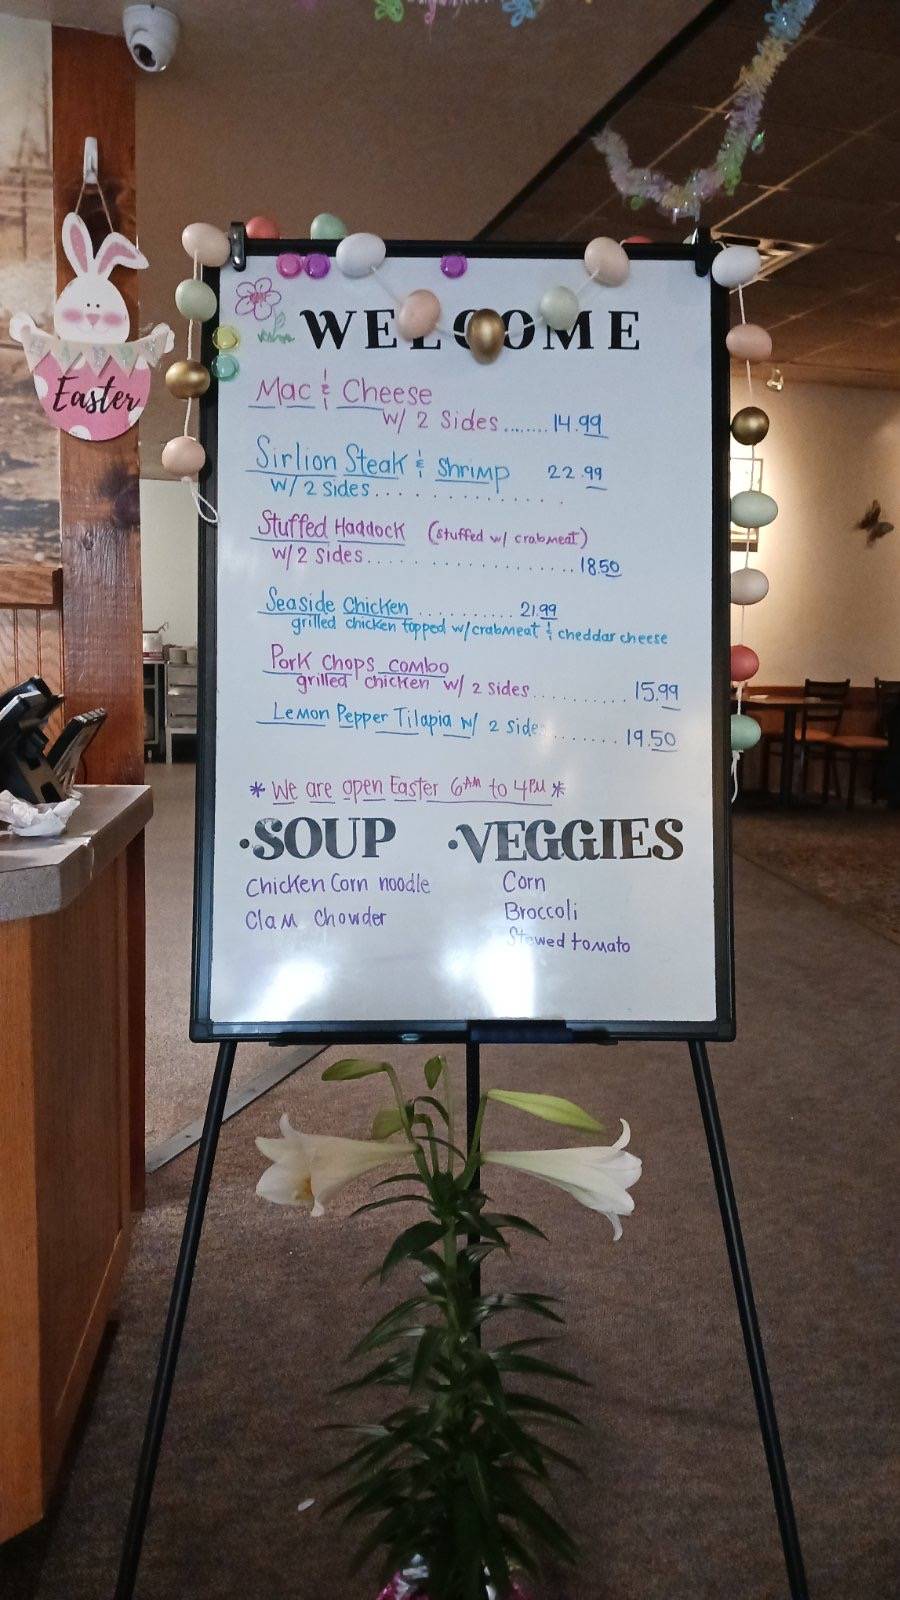 Easter
WELCOME
Mac & Cheese
w/ 2 Sides........14.99
Sirlion Steak & Shrimp 22.99
w/ 2 Sides..............
Stuffed Haddock (stuffed w/ crabmeat)
w/2 sides..................18.50
Seaside Chicken...........21.99
grilled chicken topped w/crabmeat & cheddar cheese
Pork chops combo
grilled chicken w/ 2 sides..........15.99
Lemon Pepper Tilapia w/ 2 side........19.50
* We are open Easter 6AM to 4PM *
·SOUP ·VEGGIES
Chicken Corn noodle Corn
Clam Chowder Broccoli
Stewed tomato